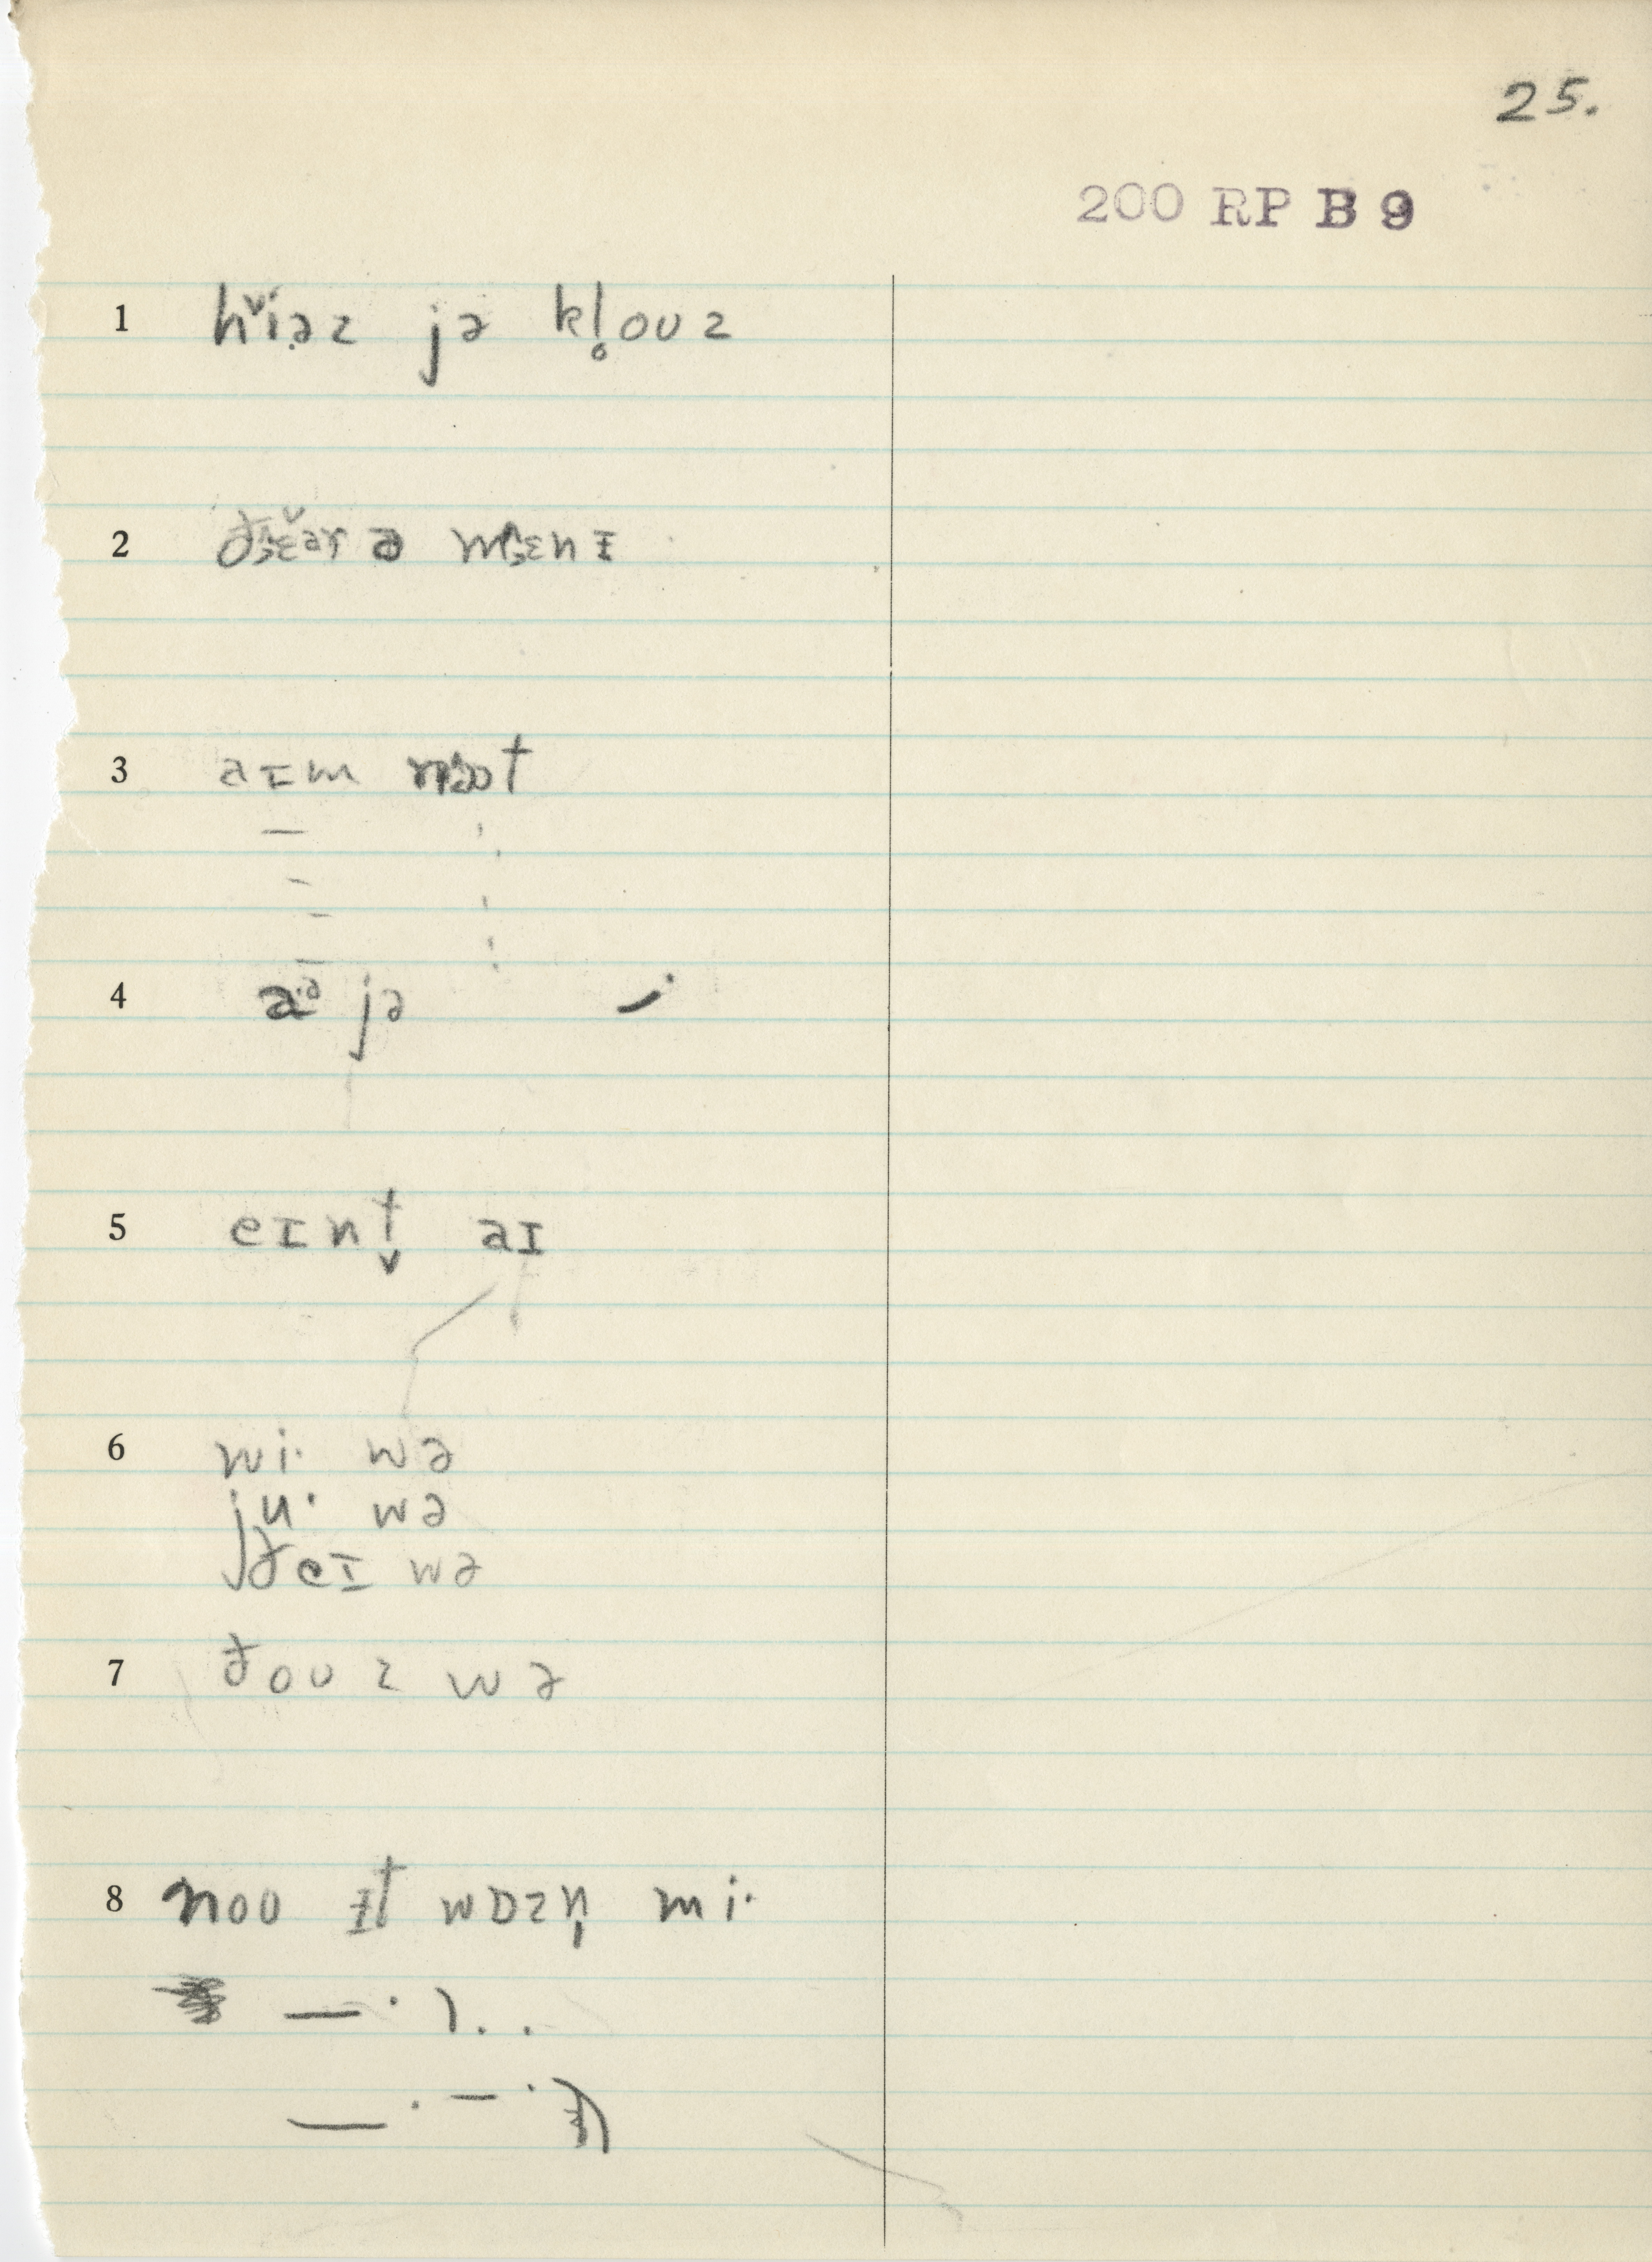 25.
200 RP B 9
1 hĭəz jə kl̥ouz
2 ðɛ̆ər ə mɛnɪ
3 aɪm nɒt
4 aə jə
5 eɪnt̬ aɪ
6 wi· wə
ju· wə
ðeɪ wə
7 ðouz wə
8 nou ɪt wɒzn̩ mi·